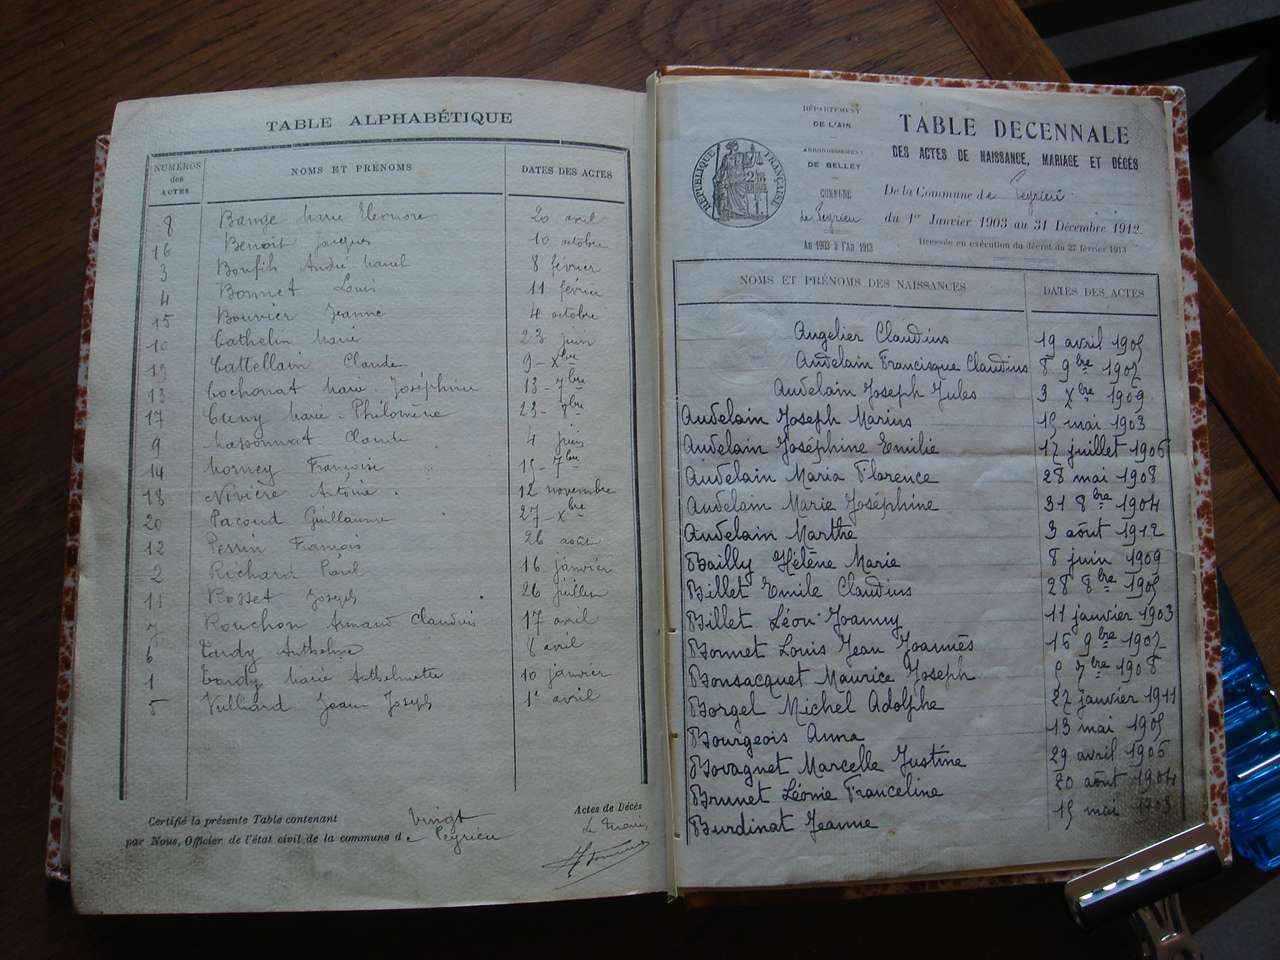 TABLE ALPHABÉTIQUE
NUMÉROS des ACTES NOMS ET PRÉNOMS DATES DES ACTES
8 Bange Marie Eleonore 20 avril
16 Benoit Jacques 10 octobre
3 Bonfils André Marcel 8 février
4 Bonnet Louis 11 février
15 Bouvier Jeanne 4 octobre
10 Cathelin Marie 23 juin
19 Cattellain Claude 9 - Xbre
13 Cochonat Marie Joséphine 13 - 7bre
17 Cuny Marie - Philomène 23 - 8bre
9 Massonnat Claude 4 juin
14 Morney Françoise 15 - 7bre
18 Nivière Antoine 12 novembre
20 Pacoud Guillaume 27 - Xbre
12 Perrin François 26 août
2 Richard Paul 16 janvier
11 Rosset Joseph 26 juillet
7 Rouchon Armand Claudius 17 avril
6 Tardy Anthelme 8 avril
1 Tardy Marie Anthelmette 10 janvier
5 Vulliard Jean Joseph 1er avril
Certifié la présente Table contenant Vingt Actes de Décès
par Nous, Officier de l'état civil de la commune de Peyrieu
Le Maire,
DÉPARTEMENT
DE L'AIN
ARRONDISSEMENT
DE BELLEY
COMMUNE
de Peyrieu
An 1903 à l'An 1913
RÉPUBLIQUE FRANÇAISE
TABLE DECENNALE
DES ACTES DE NAISSANCE, MARIAGE ET DÉCÈS
De la Commune de Peyrieu
du 1er Janvier 1903 au 31 Décembre 1912.
Dressée en exécution du décret du 27 février 1913
NOMS ET PRÉNOMS DES NAISSANCES DATES DES ACTES
Augelier Claudius 19 avril 1905
Audelain Francisque Claudius 8 9bre 1902
Audelain Joseph Jules 3 Xbre 1909
Audelain Joseph Marius 15 mai 1903
Audelain Joséphine Emilie 12 juillet 1906
Audelain Maria Florence 28 mai 1908
Audelain Marie Joséphine 31 8bre 1904
Audelain Marthe 3 août 1912
Bailly Hélène Marie 8 juin 1909
Billet Emile Claudius 28 8bre 1905
Billet Léon Joanny 11 janvier 1903
Bonnet Louis Jean Joannès 16 9bre 1907
Bonsacquet Maurice Joseph 5 7bre 1908
Borgel Michel Adolphe 22 janvier 1911
Bourgeois Anna 13 mai 1905
Bovagnet Marcelle Justine 29 avril 1906
Brunet Léonie Franceline 20 août 1904
Burdinat Jeanne 15 mai 1903